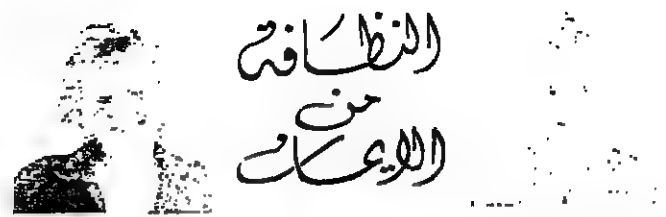 النظافة
من
الايمان